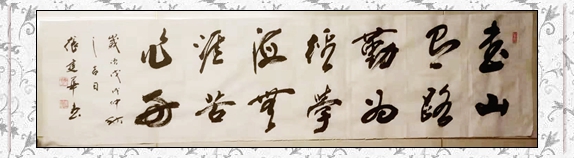 書山
有路
勤为
徑學
海無
涯苦
作舟
歲次戊戌仲秋
吉日
張建華书